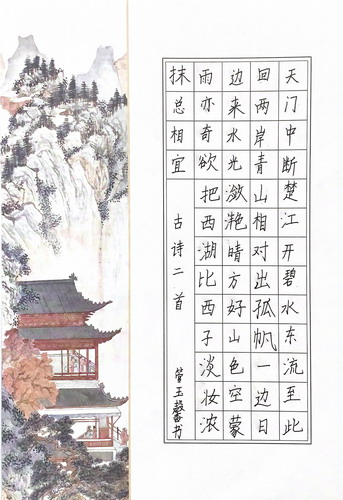 天门中断楚江开碧水东流至此
回两岸青山相对出孤帆一边日
边来水光潋滟晴方好山色空蒙
雨亦奇欲把西湖比西子淡妆浓
抹总相宜 古诗二首 管玉馨书